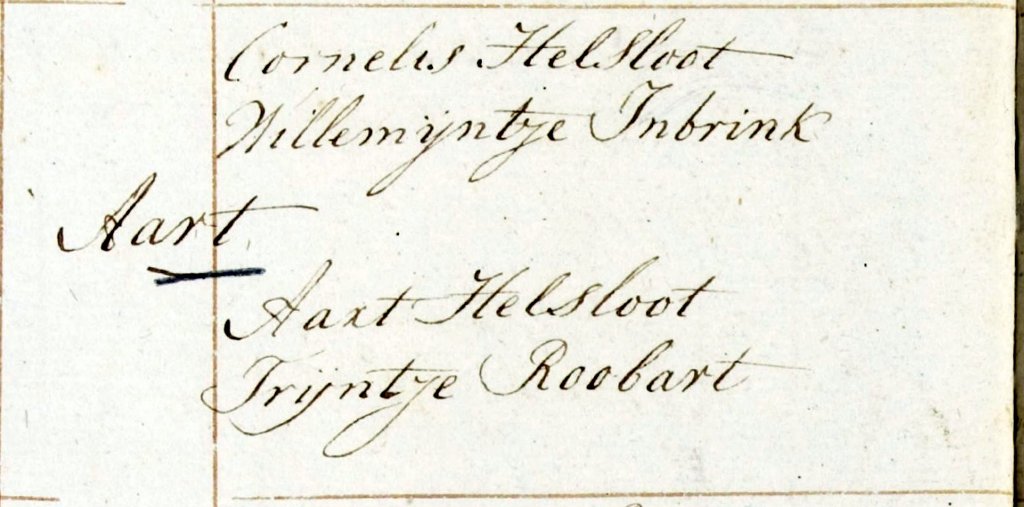 Cornelis Helsloot
Willemijntje Inbrink
Aart
Aart Helsloot
Trijntje Roobart